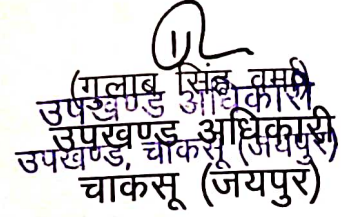 (गुलाब सिंह वर्मा)
उपखण्ड अधिकारी
उपखण्ड अधिकारी
उपखण्ड, चाकसू (जयपुर)
चाकसू (जयपुर)